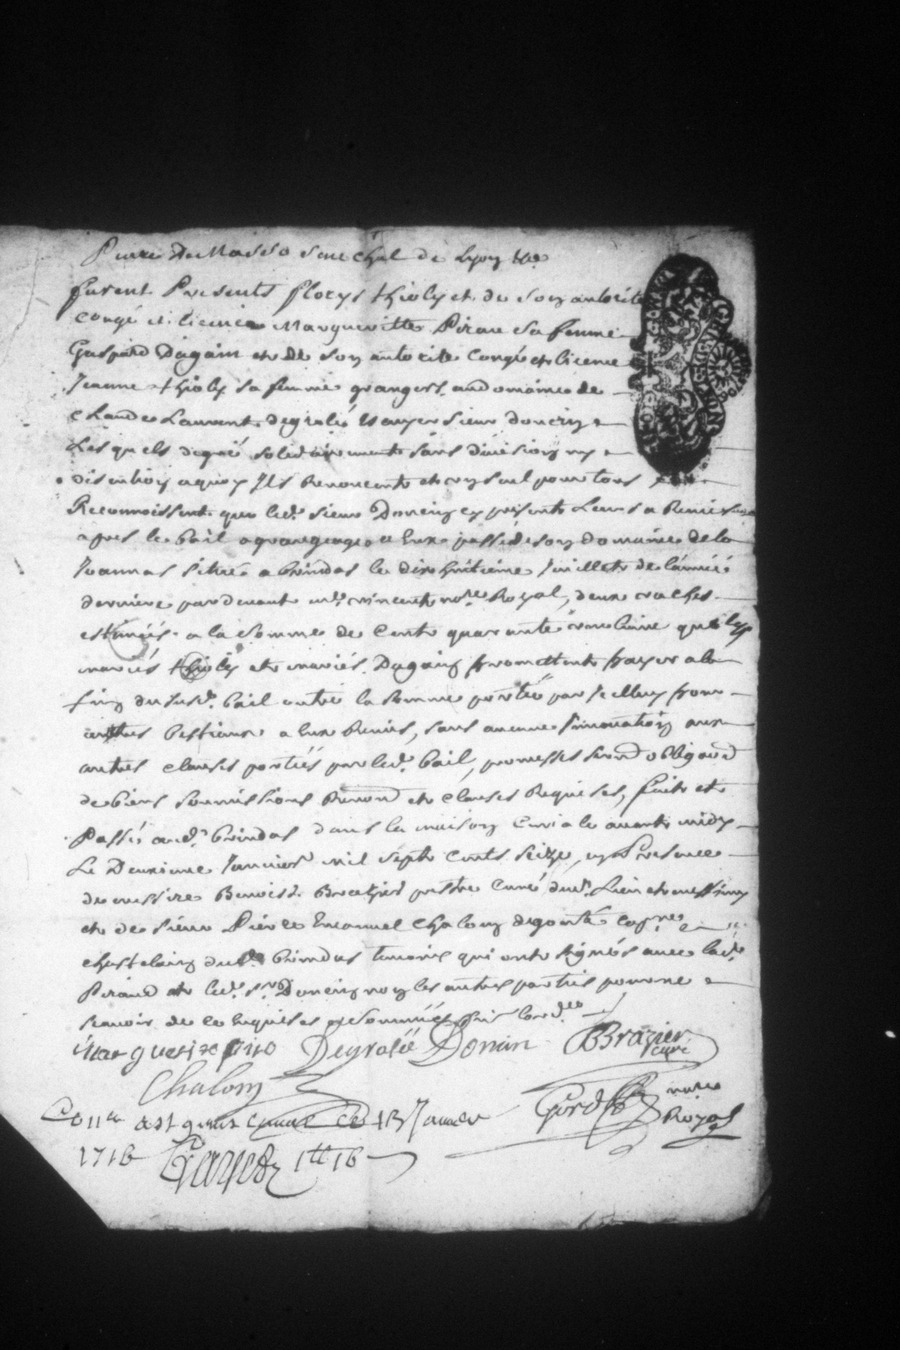 Pierre de Masso senechal de Lyon
furent Presents floris thioly et de son autorité
congé et licence Margueritte Pirau sa femme
Gaspard Dagain et de son autorite congé et licence
Jeanne thioly sa femme grangers au domaine de
Claude Laurent degrolié sieur doncin
Lesquels de gré solidairement sans division ny
discution a quoy Ils Renoncent
Reconnoissent que led. sieur Doncin present Leurs a Remis
apres le bail a grangeage a Eux passé de son domaine de la
Joannas Situé a brindas le dix huitieme Juillet de lannée
derniere pardevant me. vincent nore. Royal, deux vaches
estimées a la Somme de Cent quarante livre que les
mariés thioly et mariés Dagain promettent payer a la
fin du susd. bail outre la Somme portée par Icelluy pour
autres bestiaux a Eux Remis, sans aucune Innovation aux
autres clauses portées par led. bail, promesses
de biens soumissions Renond et clauses Requises, fait et
Passé aud. brindas dans la maison Curiale avant midy
Le Deuxieme Janvier mil Sept Cents Seize, en Presence
de messire Benoist prestre Curé dud. Lieu et messimy
et de Sieur Pierre Emanuel Chalom
chastelain dud. brindas temoins qui ont signés avec lad.
Piraud et led. sr. Doncin non les autres parties pour ne
scavoir de ce Enquises et Sommées
marguerite piro Degrolée Donsin BBrazier
curé
Chalom
nore
Royal
Conle. a st genis Laval le 13 Janvier
1716